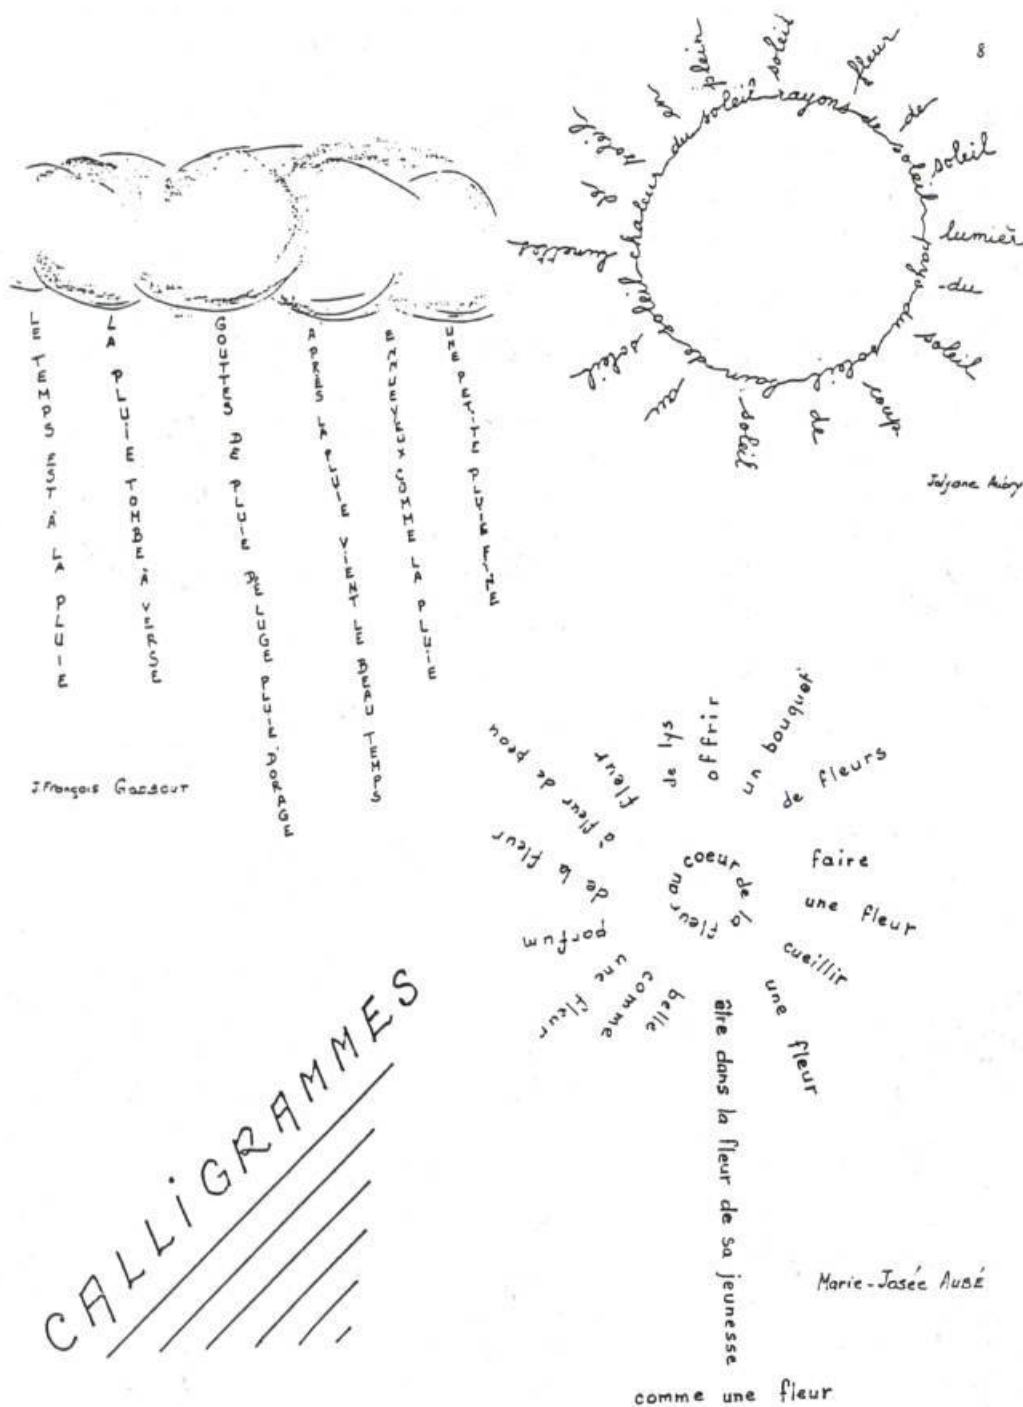 8
LE TEMPS EST À LA PLUIE
LA PLUIE TOMBE À VERSE
GOUTTES DE PLUIE DELUGE PLUIE D'ORAGE
APRÈS LA PLUIE VIENT LE BEAU TEMPS
ENNUEYEUX COMME LA PLUIE
UNE PETITE PLUIE FINE
J.François
chaleur du soleil rayons de soleil pays du soleil bain de soleil
lunettes de soleil
en plein soleil
fleur de soleil
lumièr du soleil
coup de soleil
au soleil
Aubry
au coeur de la fleur
offrir un bouquet de fleurs
faire une fleur
cueillir une fleur
être dans la fleur de sa jeunesse
belle comme une fleur
parfum de la fleur
à fleur de peau
fleur de lys
comme une fleur
Marie-Josée AUBÉ
CALLiGRAMMES